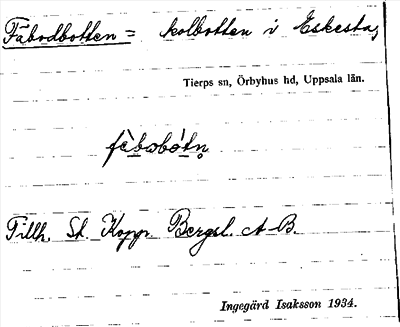 Fäbodbotten = kolbotten i Eskesta,
Tierps sn, Örbyhus hd, Uppsala län.
fä̀bωbótn̥
Tillh. St. Kopp. Bergsl. A-B.
Ingegärd Isaksson 1934.